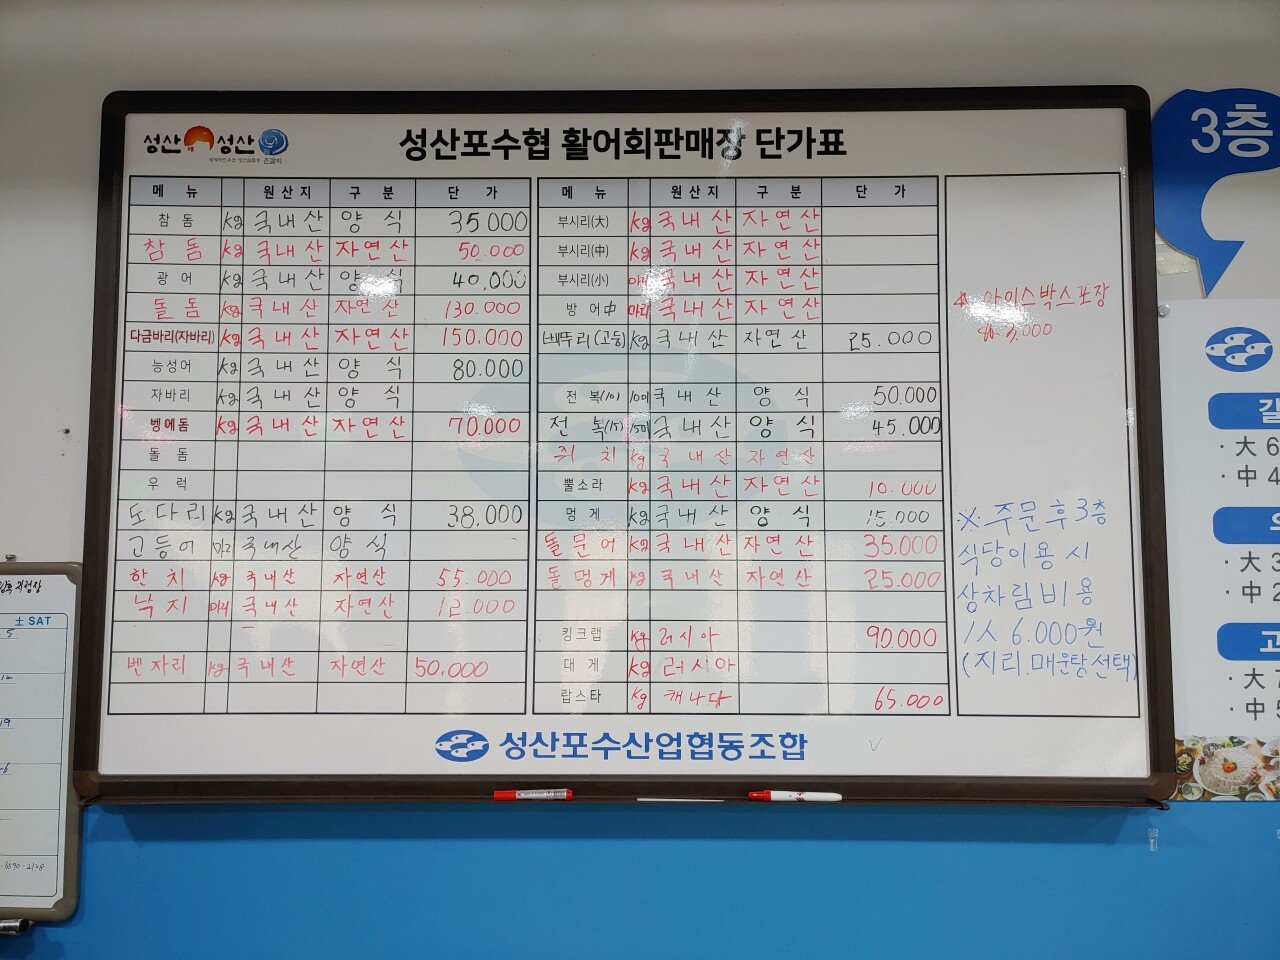 성산 성산
은갈치
성산포수협 활어회판매장 단가표
3층
메 뉴 원 산 지 구 분 단 가
참 돔 kg 국내산 양 식 35.000
참 돔 kg 국내산 자연산 50.000
광 어 kg 국내산 양 식 40,000
돌 돔 kg 국내산 자연산 130.000
다금바리(자바리) kg 국내산 자연산 150.000
능성어 kg 국내산 양 식 80.000
자바리 kg 국내산 양 식
벵에돔 kg 국내산 자연산 70.000
돌 돔
우 럭
도다리 kg 국내산 양 식 38.000
고등어 마리 국내산 양 식
한 치 kg 국내산 자연산 55.000
낙 지 마리 국내산 자연산 12.000
벤자리 kg 국내산 자연산 50.000
메 뉴 원 산 지 구 분 단 가
부시리(大) kg 국내산 자연산
부시리(中) kg 국내산 자연산
부시리(小) 마리 국내산 자연산
방 어中 마리 국내산 자연산
(고등) kg 국내산 자연산 25.000
전 복(10) 10미 국내산 양 식 50.000
전 복(15) 15미 국내산 양 식 45.000
쥐 치 kg 국내산 자연산
뿔소라 kg 국내산 자연산 10.000
멍 게 kg 국내산 양 식 15.000
돌문어 kg 국내산 자연산 35.000
돌멍게 kg 국내산 자연산 25.000
킹크랩 kg 러시아 90.000
대 게 kg 러시아
랍스타 kg 캐나다 65.000
아이스박스포장
3,000
※ 주문후 3층
식당이용 시
상차림비용
1人 6.000원
(지리.매운탕선택)
성산포수산업협동조합
土 SAT
5
12
19
-6590-2128
갈
· 大 6
· 中 4
· 大 3
· 中 2
고
· 大 7
· 中 5